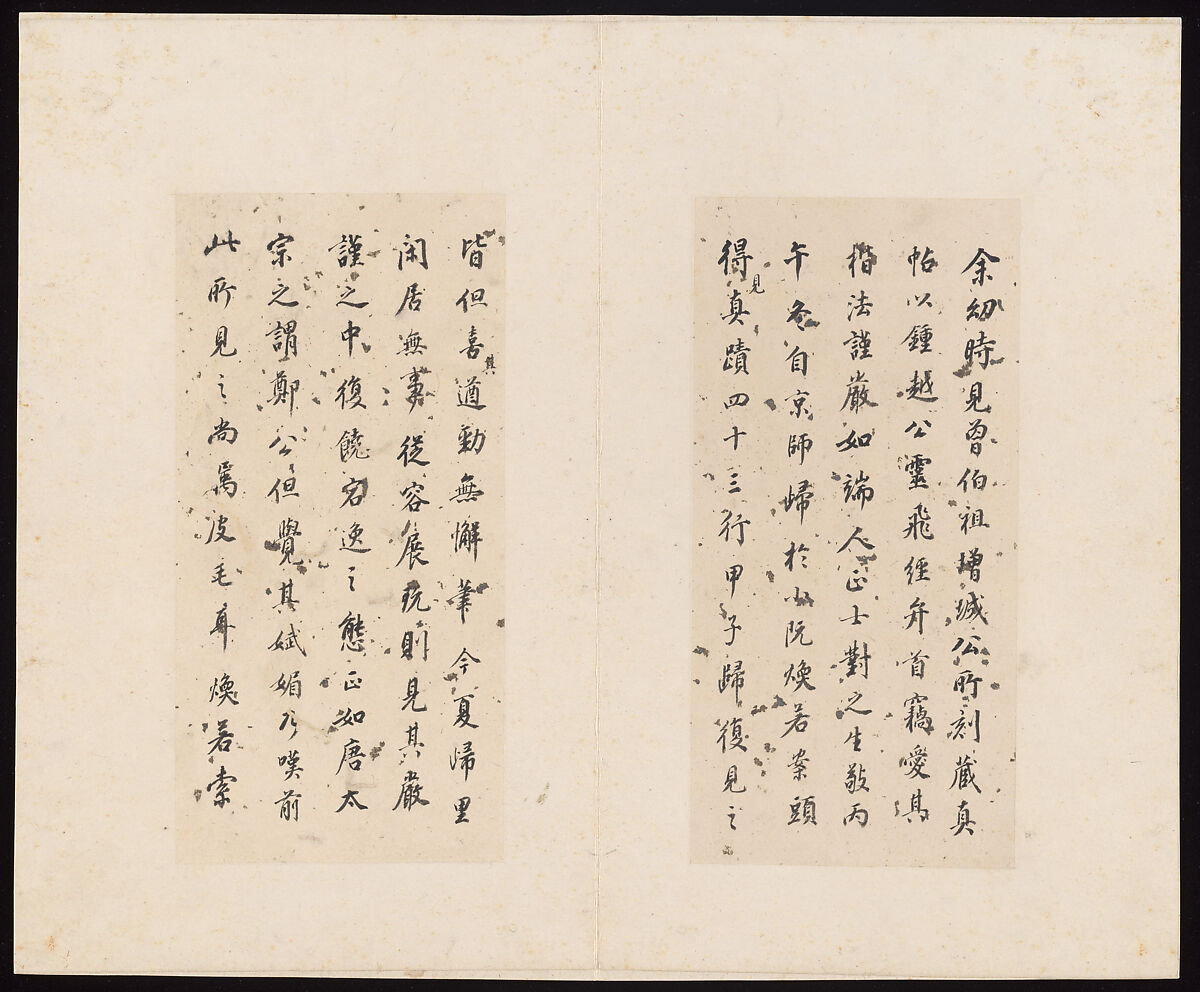 余幼時見曾伯祖增城公所刻藏真
帖以鍾越公靈飛經弁首竊愛其
楷法謹嚴如端人正士對之生敬丙
午冬自京師歸於小阮煥若案頭
得見真蹟四十三行甲子歸復見之
皆但喜其遒勁無懈筆今夏歸里
閑居無事從容展玩則見其嚴
謹之中復饒宕逸之態正如唐太
宗之謂鄭公但覺其嫵媚乃嘆前
此所見之尚為皮毛耳煥若索